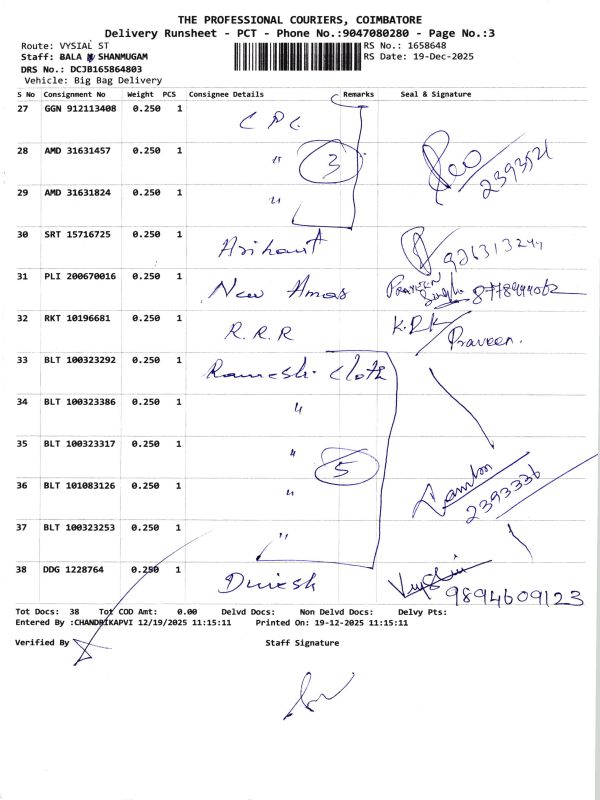 THE PROFESSIONAL COURIERS, COIMBATORE
Delivery Runsheet - PCT - Phone No.:9047080280 - Page No.:3
Route: VYSIAL ST
RS No.: 1658648
Staff: BALA SHANMUGAM
RS Date: 19-Dec-2025
DRS No.: DCJB165864803
Vehicle: Big Bag Delivery
S No Consignment No Weight PCS Consignee Details Remarks Seal & Signature
27 GGN 912113408 0.250 1 C P C
28 AMD 31631457 0.250 1 " 3 2393521
29 AMD 31631824 0.250 1 "
30 SRT 15716725 0.250 1 Arihant
31 PLI 200670016 0.250 1 New Amas Praveen
32 RKT 10196681 0.250 1 R.R.R K.P.K Praveen.
33 BLT 100323292 0.250 1 Ramesh Cloth
34 BLT 100323386 0.250 1 "
35 BLT 100323317 0.250 1 " 5
36 BLT 101083126 0.250 1 " 2393336
37 BLT 100323253 0.250 1 "
38 DDG 1228764 0.250 1 Dinesh 9894609123
Tot Docs: 38 Tot COD Amt: 0.00 Delvd Docs: Non Delvd Docs: Delvy Pts:
Entered By :CHANDRIKAPVI 12/19/2025 11:15:11 Printed On: 19-12-2025 11:15:11
Verified By Staff Signature